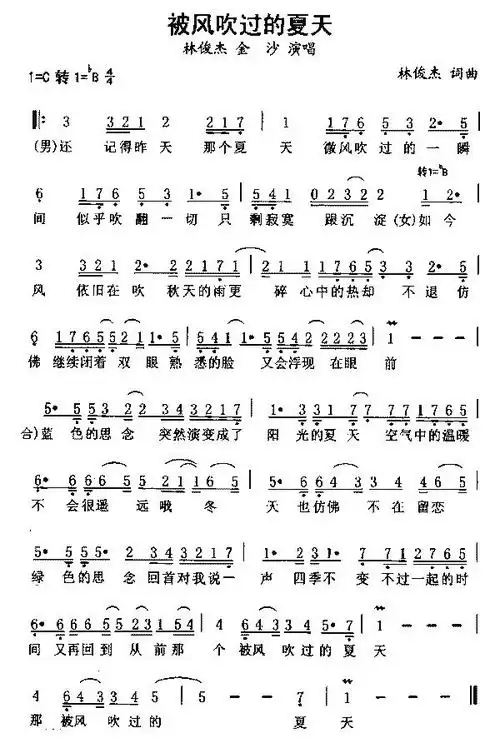 被风吹过的夏天
林俊杰 金 沙 演唱
1=C 转 1=♭B 4/4
林俊杰 词曲
3 3 2 1 2 2 1 7 | 1 1 7 6 5 3 2• 5 |
(男)还 记得昨 天 那个夏 天 微风吹 过的一瞬
转1=♭B
6 1 7 6 5 3 1• 5 | 5 4 1 0 2 3 2 1 2• |
间 似乎吹 翻一切只 剩寂寞 跟沉 淀(女)如今
3 3 2 1 2• 2 2 2 1 7 1 | 2 1 1 1 1 7 6 5 3 2• 5 |
风 依旧在吹 秋天的雨更 碎 心中的热却 不退仿
6 1 7 6 5 5 2 1 1• 5 | 5 4 1 6 5 5 4 2 2 2 3 2 | 1 - - - |
佛 继续闭着 双 眼熟 悉的脸 又会浮现在眼 前
5• 5 5 3 2 2 3 4 3 2 1 7 | 1• 3 3 1 7 7 7 1 1 7 6 5 |
合)蓝 色的思 念 突然演变成了 阳 光的夏 天 空气中的温暖
6• 6 6 6 5 5 2 1 1 6 5 | 6 6 6 5 6 4 3 3 4 4 6 |
不 会很遥 远哦 冬 天 也仿佛 不 在留恋
5• 5 5 5 2 2 3 4 3 2 1 7 | 1• 3 3 1 7 7 7 1 1 7 6 5 |
绿 色的思 念 回首对我说一 声 四季不 变 不过一起的时
6• 6 6 6 5 5 2 3 5 1 | 4 6 4 3 3 4 5• 7 | 1 - - - |
间 又再回到 从前那 个 被风 吹过的夏 天
4 6 4 3 3 4 5 5 - | 5 - - 7 | 1 - - - |
那 被风 吹过的 夏 天